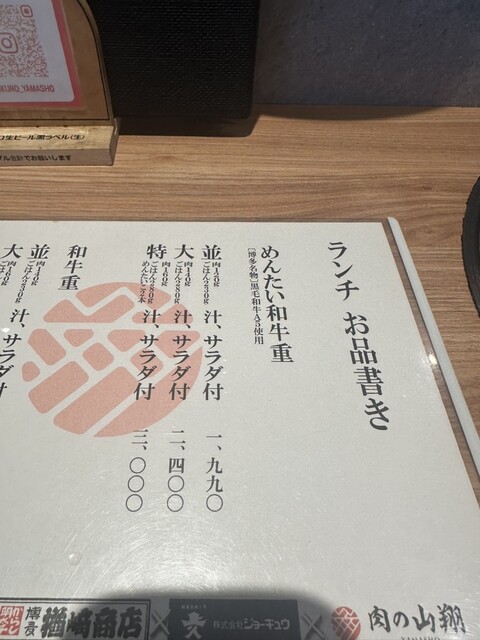 KUNO_YAMASHO
ランチ お品書き
めんたい和牛重
[博多名物]黒毛和牛A5使用
並 肉120g ごはん230g 汁、サラダ付 一、九九〇
大 肉140g ごはん280g 汁、サラダ付 二、四〇〇
特 肉160g ごはん280g めんたい2本 汁、サラダ付 三、〇〇〇
和牛重
並 肉140g ごはん230g 汁、サラダ付
大 肉160g 汁、サラダ付
博多 椒﨑商店
×
株式会社ジョーキュウ
×
肉の山翔